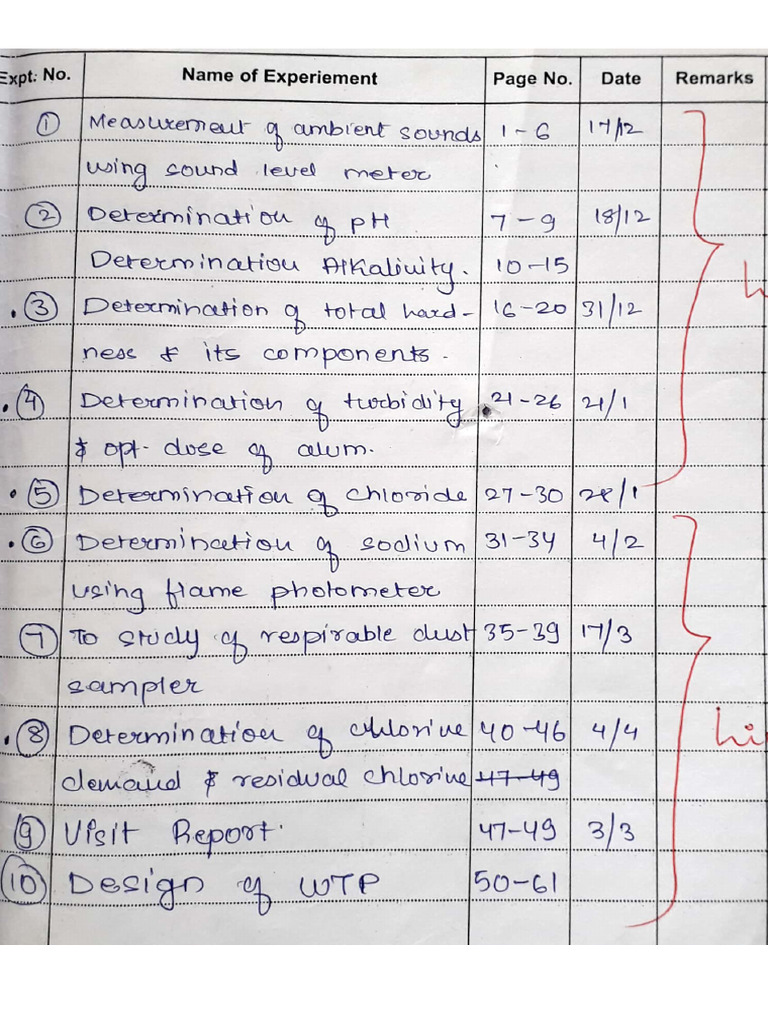 Expt: No. Name of Experiement Page No. Date Remarks
1 Measurement of ambient sounds 1-6 17/12
using sound level meter
2 Determination of pH 7-9 18/12
Determination Alkalinity. 10-15
3 Determination of total hard- 16-20 31/12
ness & its components.
4 Determination of turbidity 21-26 21/1
& opt. dose of alum.
5 Determination of chloride 27-30 28/1
6 Determination of sodium 31-34 4/2
using flame photometer
7 To study of respirable dust 35-39 17/3
sampler
8 Determination of chlorine 40-46 4/4
demand & residual chlorine 47-49
9 Visit Report. 47-49 3/3
10 Design of WTP 50-61